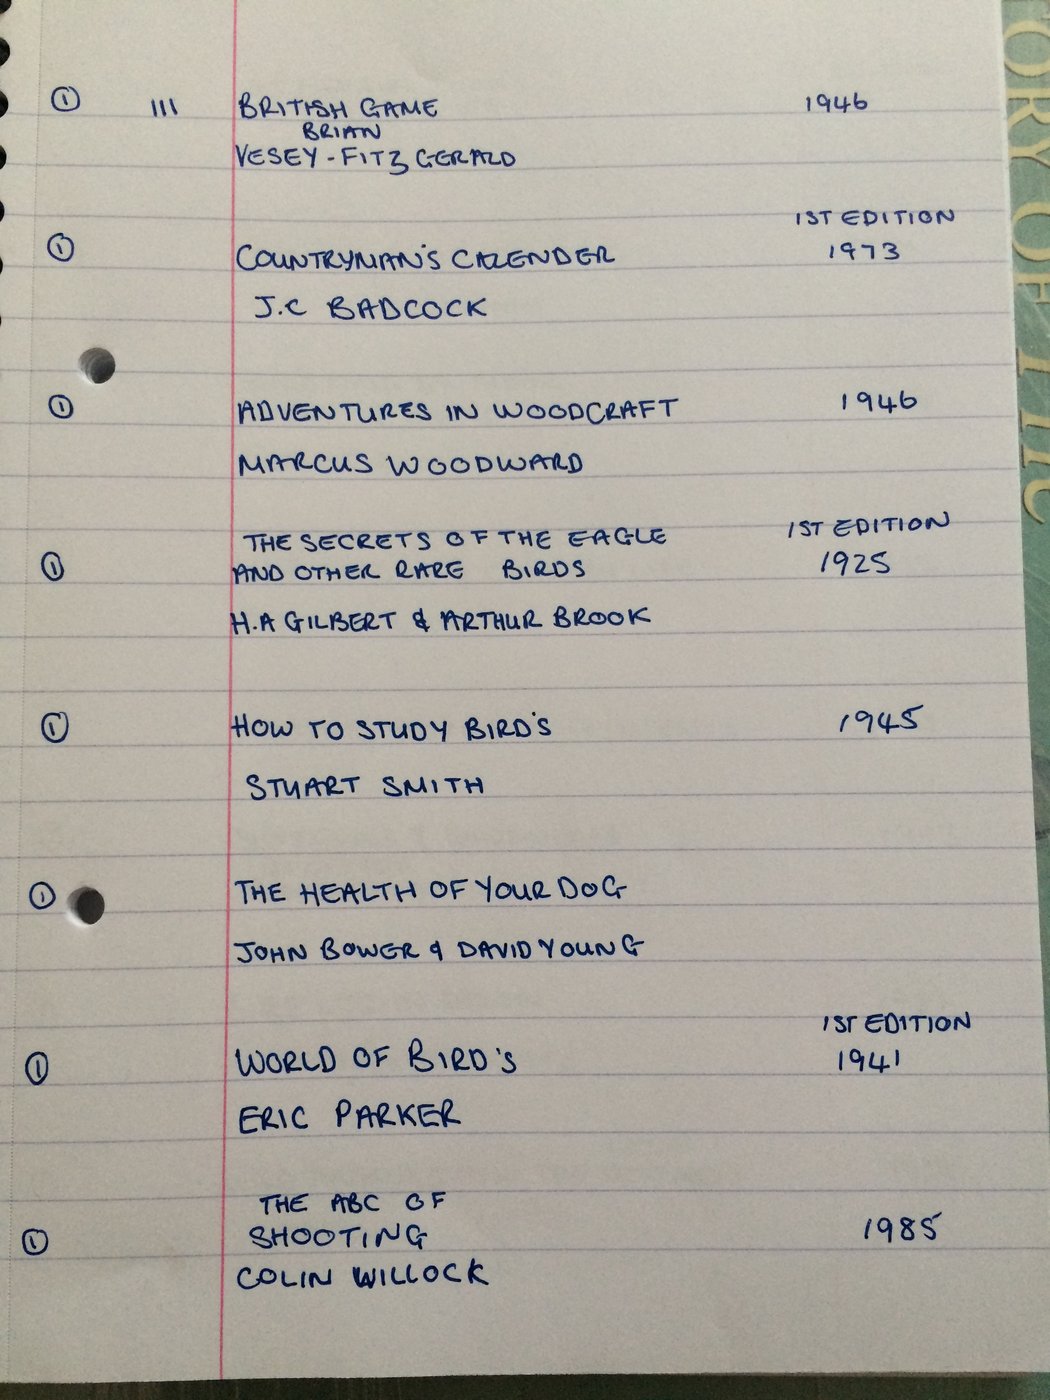 ① III BRITISH GAME 1946
BRIAN
VESEY-FITZGERALD
1ST EDITION
① COUNTRYMAN'S CALENDER 1973
J.C BADCOCK
① ADVENTURES IN WOODCRAFT 1946
MARCUS WOODWARD
THE SECRETS OF THE EAGLE 1ST EDITION
① AND OTHER RARE BIRDS 1925
H.A GILBERT & ARTHUR BROOK
① HOW TO STUDY BIRD'S 1945
STUART SMITH
① THE HEALTH OF YOUR DOG
JOHN BOWER & DAVID YOUNG
1ST EDITION
① WORLD OF BIRD'S 1941
ERIC PARKER
THE ABC OF
① SHOOTING 1985
COLIN WILLOCK
TORY OF